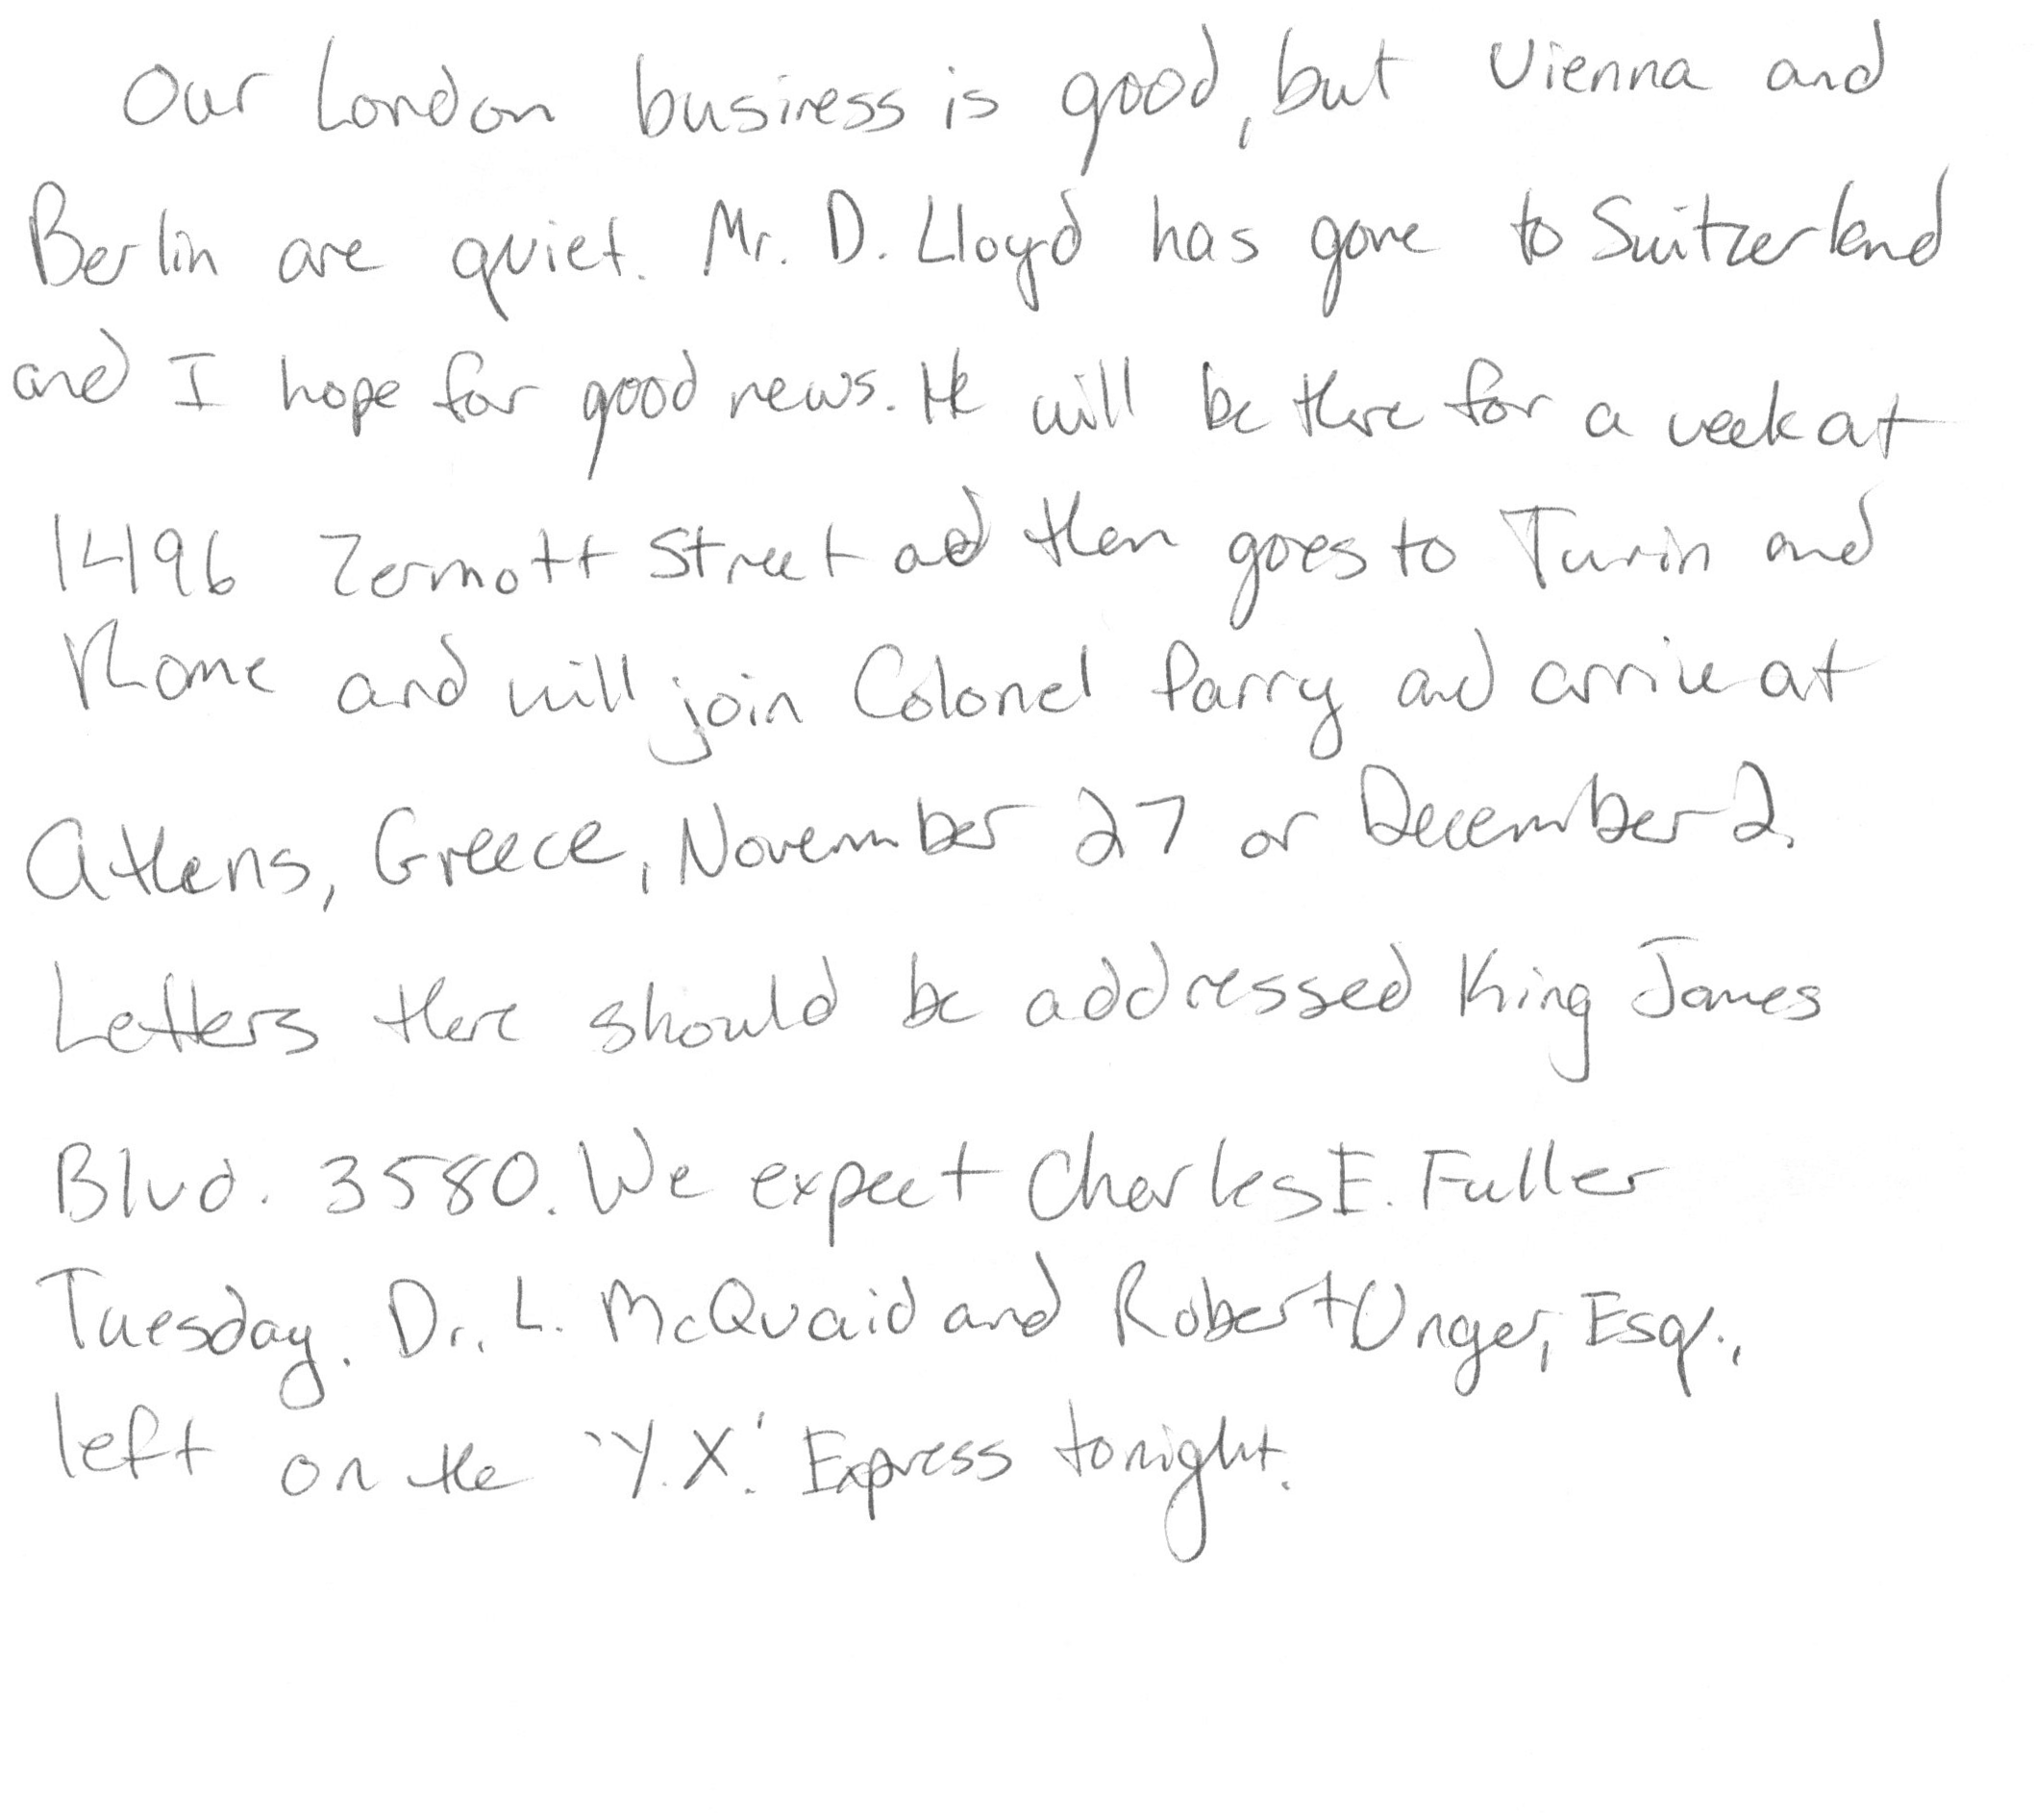 Our London business is good, but Vienna and
Berlin are quiet. Mr. D. Lloyd has gone to Switzerland
and I hope for good news. He will be there for a week at
1496 Zermott Street and then goes to Turin and
Rome and will join Colonel Parry and arrive at
Athens, Greece, November 27 or December 2.
Letters there should be addressed King James
Blvd. 3580. We expect Charles E. Fuller
Tuesday. Dr. L. McQuaid and Robert Unger, Esq.,
left on the 'Y.X.' Express tonight.